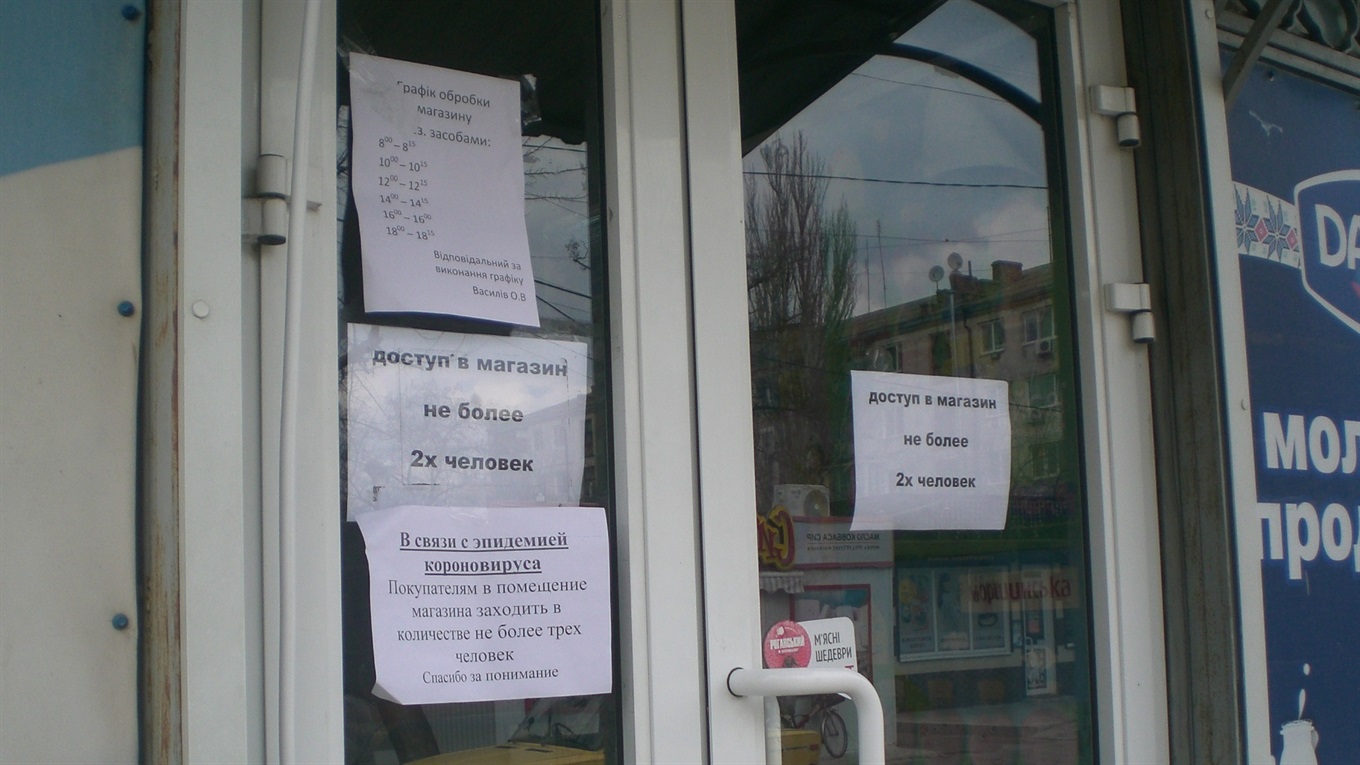 Графік обробки
магазину
.з. засобами:
8⁰⁰ – 8¹⁵
10⁰⁰ – 10¹⁵
12⁰⁰ – 12¹⁵
14⁰⁰ – 14¹⁵
16⁰⁰ – 16⁰⁰
18⁰⁰ – 18¹⁵
Відповідальний за
виконання графіку
Василів О.В
доступ в магазин
не более
2х человек
В связи с эпидемией
короновируса
Покупателям в помещение
магазина заходить в
количестве не более трех
человек
Спасибо за понимание
доступ в магазин
не более
2х человек
МАСЛО КОВБАСА СИР
М'ЯСНІ
ШЕДЕВРИ
DA
МОЛ
ПРОД